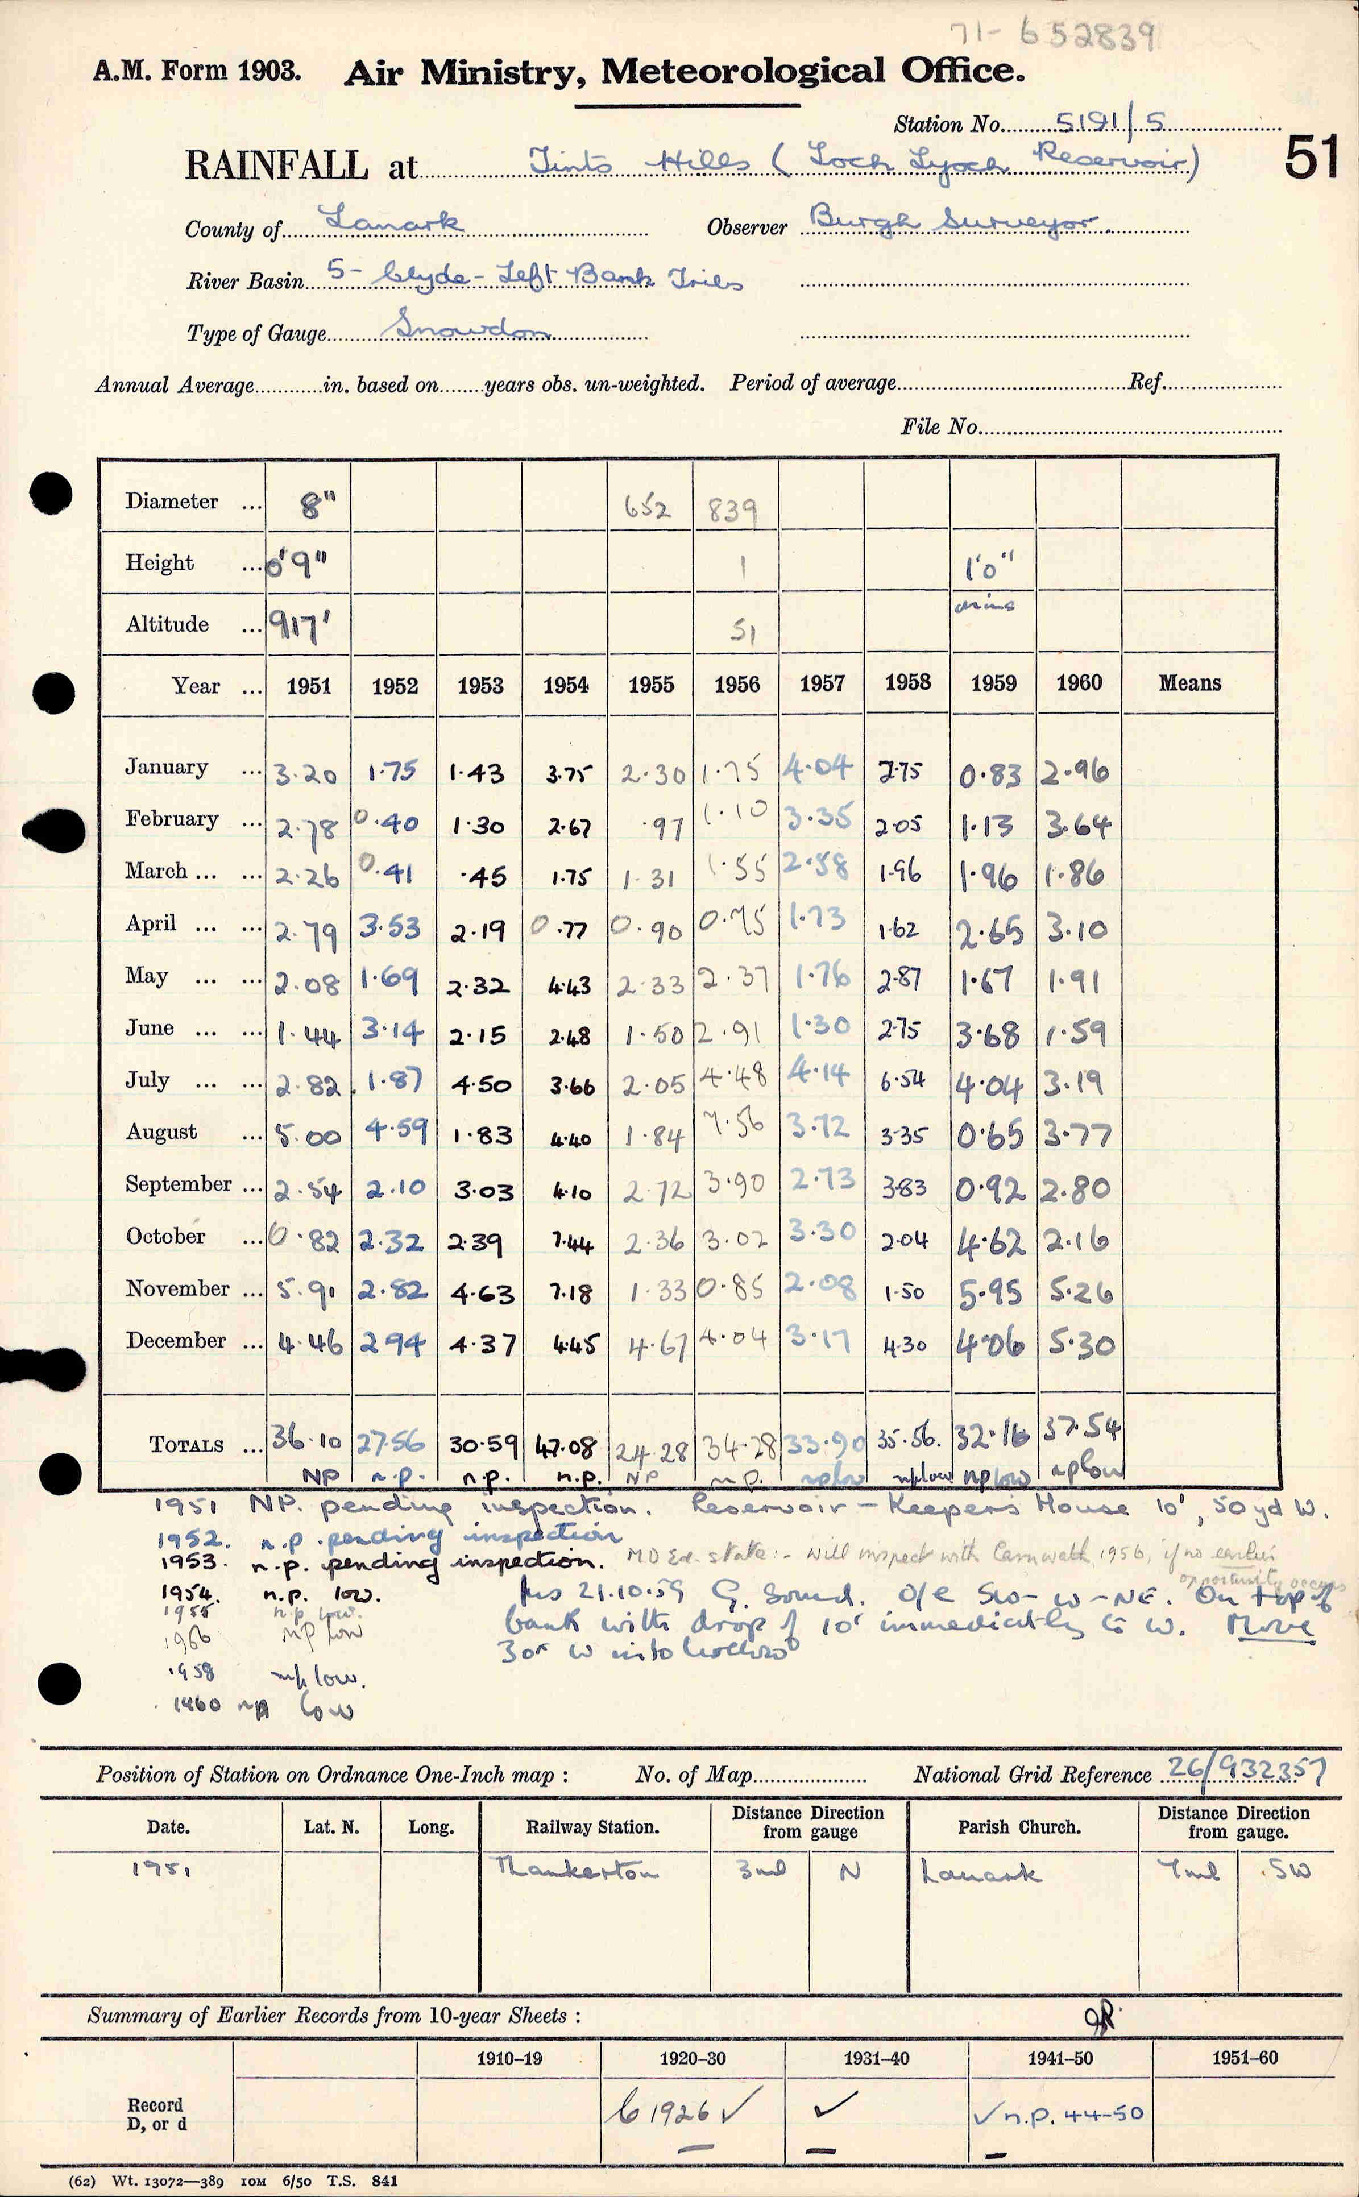 71- 652839
A.M. Form 1903. Air Ministry, Meteorological Office.
Station No. 5191/5
RAINFALL at Tinto Hills (Loch Lyoch Reservoir) 51
County of Lanark Observer Burgh Surveyor
River Basin 5- Clyde - Left Bank Tribs
Type of Gauge Snowdon
Annual Average in. based on years obs. un-weighted. Period of average Ref.
File No.
Diameter ... 8" 652 839
Height ... 0'9" 1 1'0"
Altitude ... 917' 51
Year ... 1951 1952 1953 1954 1955 1956 1957 1958 1959 1960 Means
January ... 3.20 1.75 1.43 3.75 2.30 1.75 4.04 2.75 0.83 2.96
February ... 2.78 0.40 1.30 2.67 .97 1.10 3.35 2.05 1.13 3.64
March ... ... 2.26 0.41 .45 1.75 1.31 1.55 2.58 1.96 1.96 1.86
April ... ... 2.79 3.53 2.19 0.77 0.90 0.75 1.73 1.62 2.65 3.10
May ... ... 2.08 1.69 2.32 4.43 2.33 2.37 1.76 2.87 1.67 1.91
June ... ... 1.44 3.14 2.15 2.48 1.50 2.91 1.30 2.75 3.68 1.59
July ... ... 2.82 1.87 4.50 3.66 2.05 4.48 4.14 6.54 4.04 3.19
August ... 5.00 4.59 1.83 4.40 1.84 7.56 3.72 3.35 0.65 3.77
September ... 2.54 2.10 3.03 4.10 2.72 3.90 2.73 3.83 0.92 2.80
October ... 0.82 2.32 2.39 7.44 2.36 3.02 3.30 2.04 4.62 2.16
November ... 5.91 2.82 4.63 7.18 1.33 0.85 2.08 1.50 5.95 5.26
December ... 4.46 2.94 4.37 4.45 4.67 4.04 3.17 4.30 4.06 5.30
TOTALS ... 36.10 27.56 30.59 47.08 24.28 34.28 33.90 35.56 32.16 37.54
NP n.p. n.p. n.p. NP n.p. np low np low np low np low
1951 NP. pending inspection. Reservoir - Keeper's House 10', 50 yd W.
1952. n.p. pending inspection
1953. n.p. pending inspection. M.O. Ed. state:- Will inspect with Carnwath 1956, if no earlier opportunity occurs
1954. n.p. low. Ins 21.10.59 G. Sound. O/E SW - W - NE. On top of
1955 n.p. low. bank with drop of 10' immediately to W. Move
1956 NP low 30x W into hollow
1958 np low.
1960 np low
Position of Station on Ordnance One-Inch map : No. of Map National Grid Reference 26/932357
Date. Lat. N. Long. Railway Station. Distance Direction from gauge Parish Church. Distance Direction from gauge.
1951 Thankerton 3ml N Lanark 7ml SW
Summary of Earlier Records from 10-year Sheets :
1910–19 1920–30 1931–40 1941–50 1951–60
Record D, or d 1926 ✓ ✓ ✓ n.p. 44-50
(62) Wt. 13072—389 IOM 6/50 T.S. 841